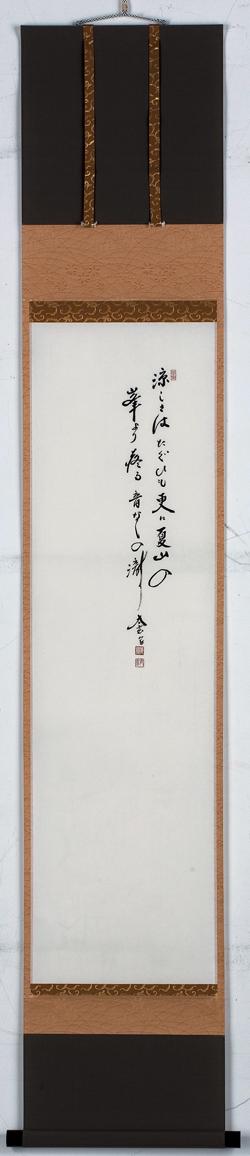 涼しさはたぐひも更に夏山の
峯より落る音なしの瀧